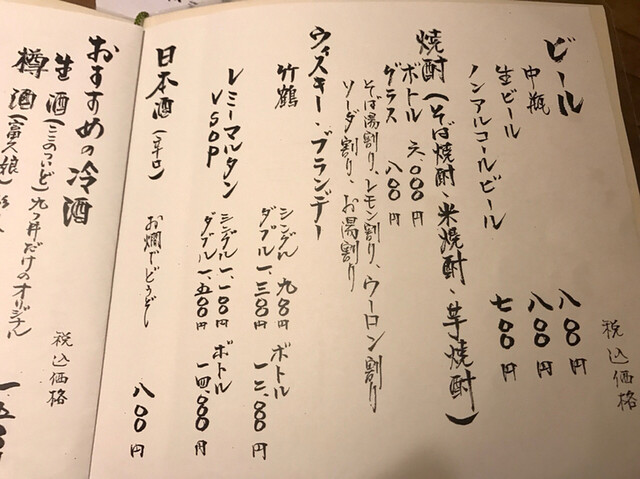 税込価格
ビール
中瓶 八〇〇円
生ビール 八〇〇円
ノンアルコールビール 七〇〇円
焼酎（そば焼酎・米焼酎・芋焼酎）
ボトル 六、〇〇〇円
グラス 八〇〇円
そば湯割り、レモン割り、ウーロン割り
ソーダ割り、お湯割り
ウィスキー・ブランデー
竹鶴 シングル 九〇〇円 ボトル 一二、〇〇〇円
ダブル 一、三〇〇円
レミーマルタン シングル 一、一〇〇円 ボトル 一四、〇〇〇円
VSOP ダブル 一、五〇〇円
日本酒（辛口） 八〇〇円
お燗でどうぞ
税込価格
おすすめの冷酒
生酒（ここのついど）九つ井だけのオリジナル
樽酒（富久娘） 一、五〇〇円